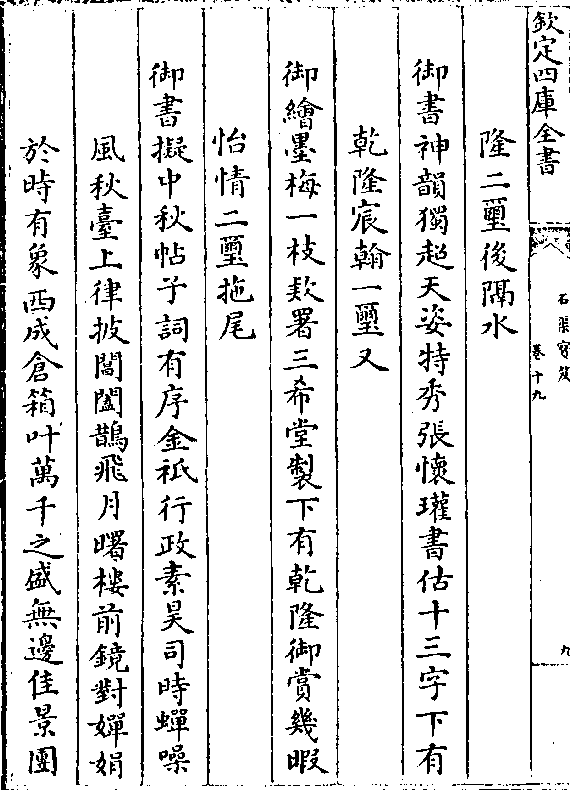 欽定四庫全書
石渠寳笈
卷十九
九
隆二璽後隔水
御書神韻獨超天姿特秀張懷瓘書估十三字下有
乾隆宸翰一璽又
御繪墨梅一枝欵署三希堂製下有乾隆御賞幾暇
怡情二璽拖尾
御書擬中秋帖子詞有序金祇行政素昊司時蟬噪
風秋臺上律披閶闔鵲飛月曙樓前鏡對嬋娟
於時有象西成倉箱叶萬千之盛無邊佳景團